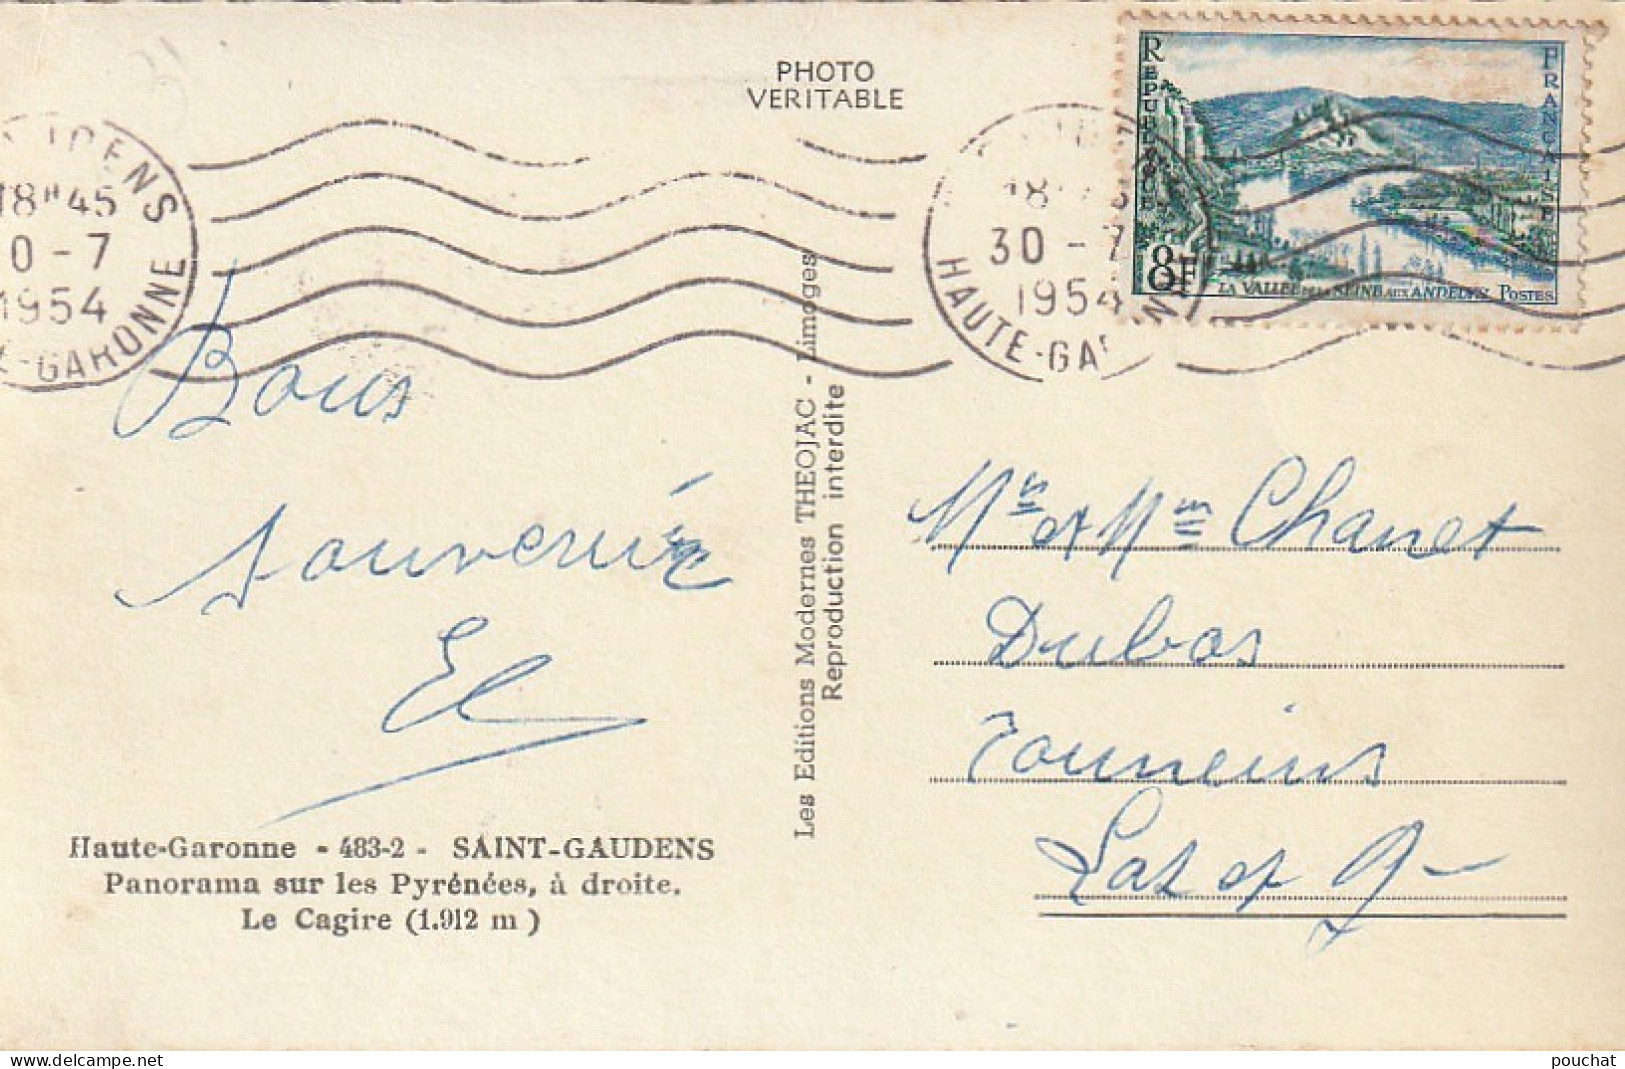 PHOTO
VERITABLE
18H45
0-7
1954
-GARONNE
30-7
1954
HAUTE-GA NNE
REPUBLIQUE FRANCAISE
8F
LA VALLEE DE LA SEINE AUX ANDELYS POSTES
Bons
souvenirs
Les Editions Modernes THEOJAC - Limoges
Reproduction interdite
Mr et Mme Chanet
Dubos
Tonneins
Lot et G
Haute-Garonne - 483-2 - SAINT-GAUDENS
Panorama sur les Pyrénées, à droite.
Le Cagire (1.912 m)
pouchat
delcampe.net